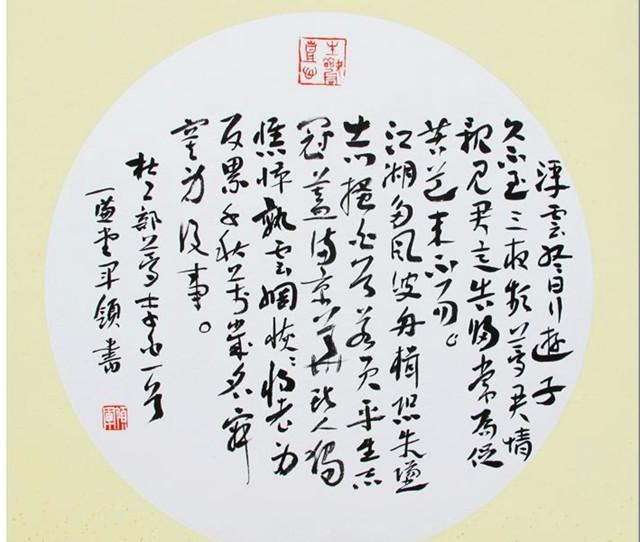 浮雲終日行遊子
久不至三夜頻夢君情
親見君意告歸常局促
苦道来不易。
江湖多風波舟楫恐失墜
出門搔白首若負平生志
冠蓋滿京華斯人獨
憔悴孰雲網恢恢将老身
反累千秋萬歲名寂
寞身後事。
杜工部夢李白一首
軍領書